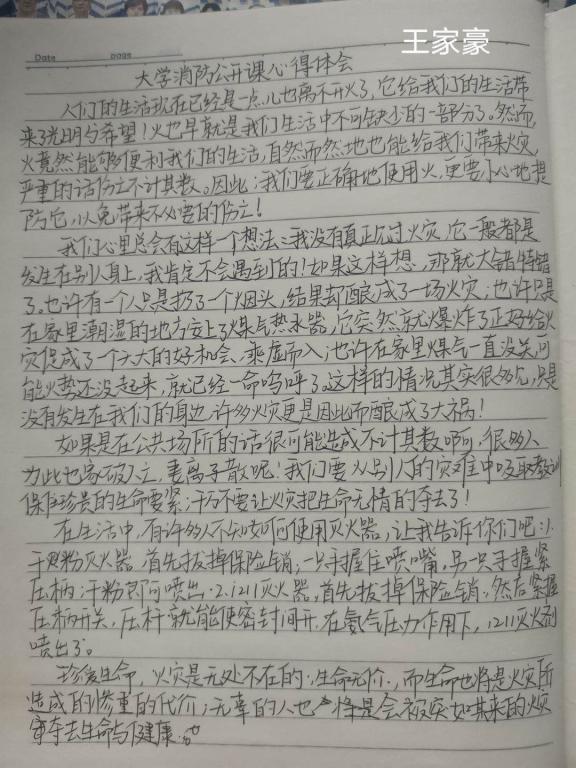 王家豪
Date page
大学消防公开课心得体会
人们的生活现在已经是一点儿也离不开火了,它给我们的生活带
来光明与希望!火也早就是我们生活中不可缺少的一部分了。然而,
火竟然能够便利我们的生活,自然而然地也能给我们带来火灾,
严重的话伤亡不计其数。因此:我们要正确地使用火,更要小心地提
防它,以免带来不必要的伤亡!
我们心里总会有这样一个想法:我没有真正历过火灾,它一般都是
发生在别人身上,我肯定不会遇到的!如果这样想,那就大错特错
了。也许有一个人只是扔了一个烟头,结果却酿成了一场火灾;也许只是
在家里潮湿的地方按上了煤气热水器,它突然就爆炸了正好给火
灾促成了一个大大的好机会、乘虚而入;也许在家里煤气一直没关,可
能火势还没起来,就已经一命呜呼了。这样的情况其实很多见,只是
没有发生在我们的身边,许多火灾更是因此而酿成了大祸!
如果是在公共场所的话很可能造成不计其数啊,很多人
为此也家破人亡,妻离子散呢!我们要从别人的灾难中吸取教训
保住珍贵的生命要紧;千万不要让火灾把生命无情的夺去了!
在生活中,有许多人不知如何使用灭火器,让我告诉你们吧:1.
干粉灭火器,首先拔掉保险销,一只手握住喷嘴,另一只手握紧
压柄,干粉即可喷出.2.1211灭火器,首先拔掉保险销.然后紧握
压柄开关,压杆就能使密封间开.在氨气压力作用下,1211灭火剂
喷出了。
珍爱生命,火灾是无处不在的.生命无价.,而生命也将是火灾所
造成的惨重的代价;无辜的人也将是会被突如其来的火灾
夺去生命与健康.